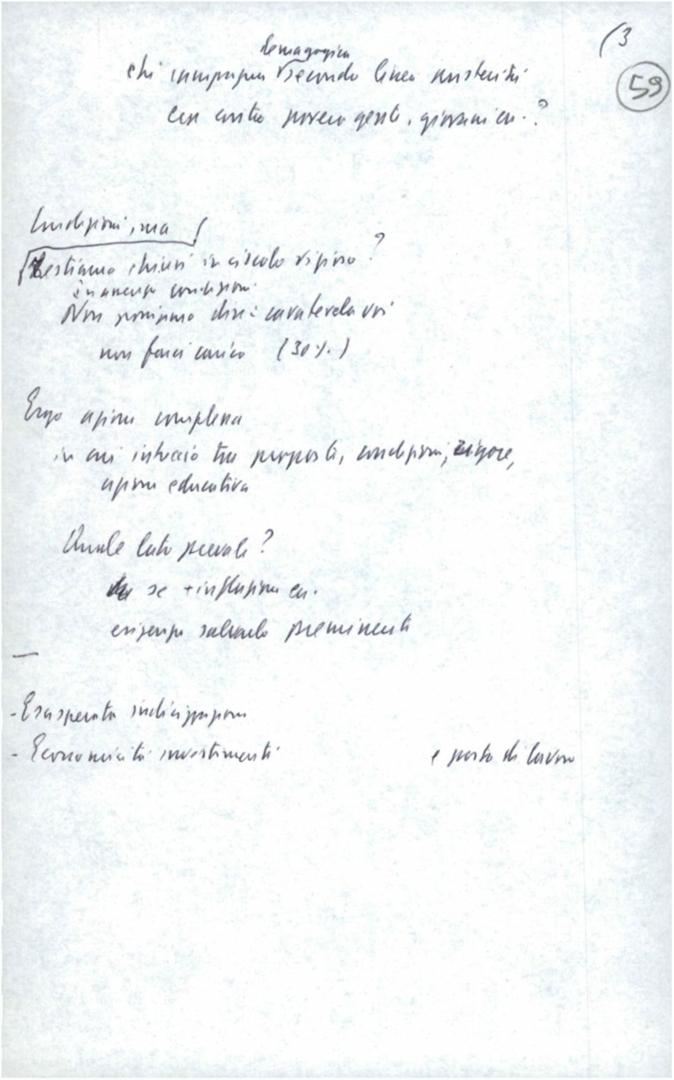 (3
59
demagogica
chi campagna secondo linea austerità
con contro povera gente, giovani ecc.?
Condizioni, ma
Restiamo chiusi in circolo vizioso?
in assenza condizioni
Non possiamo dire: cavatevela voi
non farci carico (30%.)
Ergo azione complessa
in cui intreccio tra proposte, condizioni, rigore,
azione educativa
Quale lato prevale?
se + inflazione ecc.
esigenze salariali preminenti
—
- Esasperata indicizzazione
- Economicità investimenti e posto di lavoro